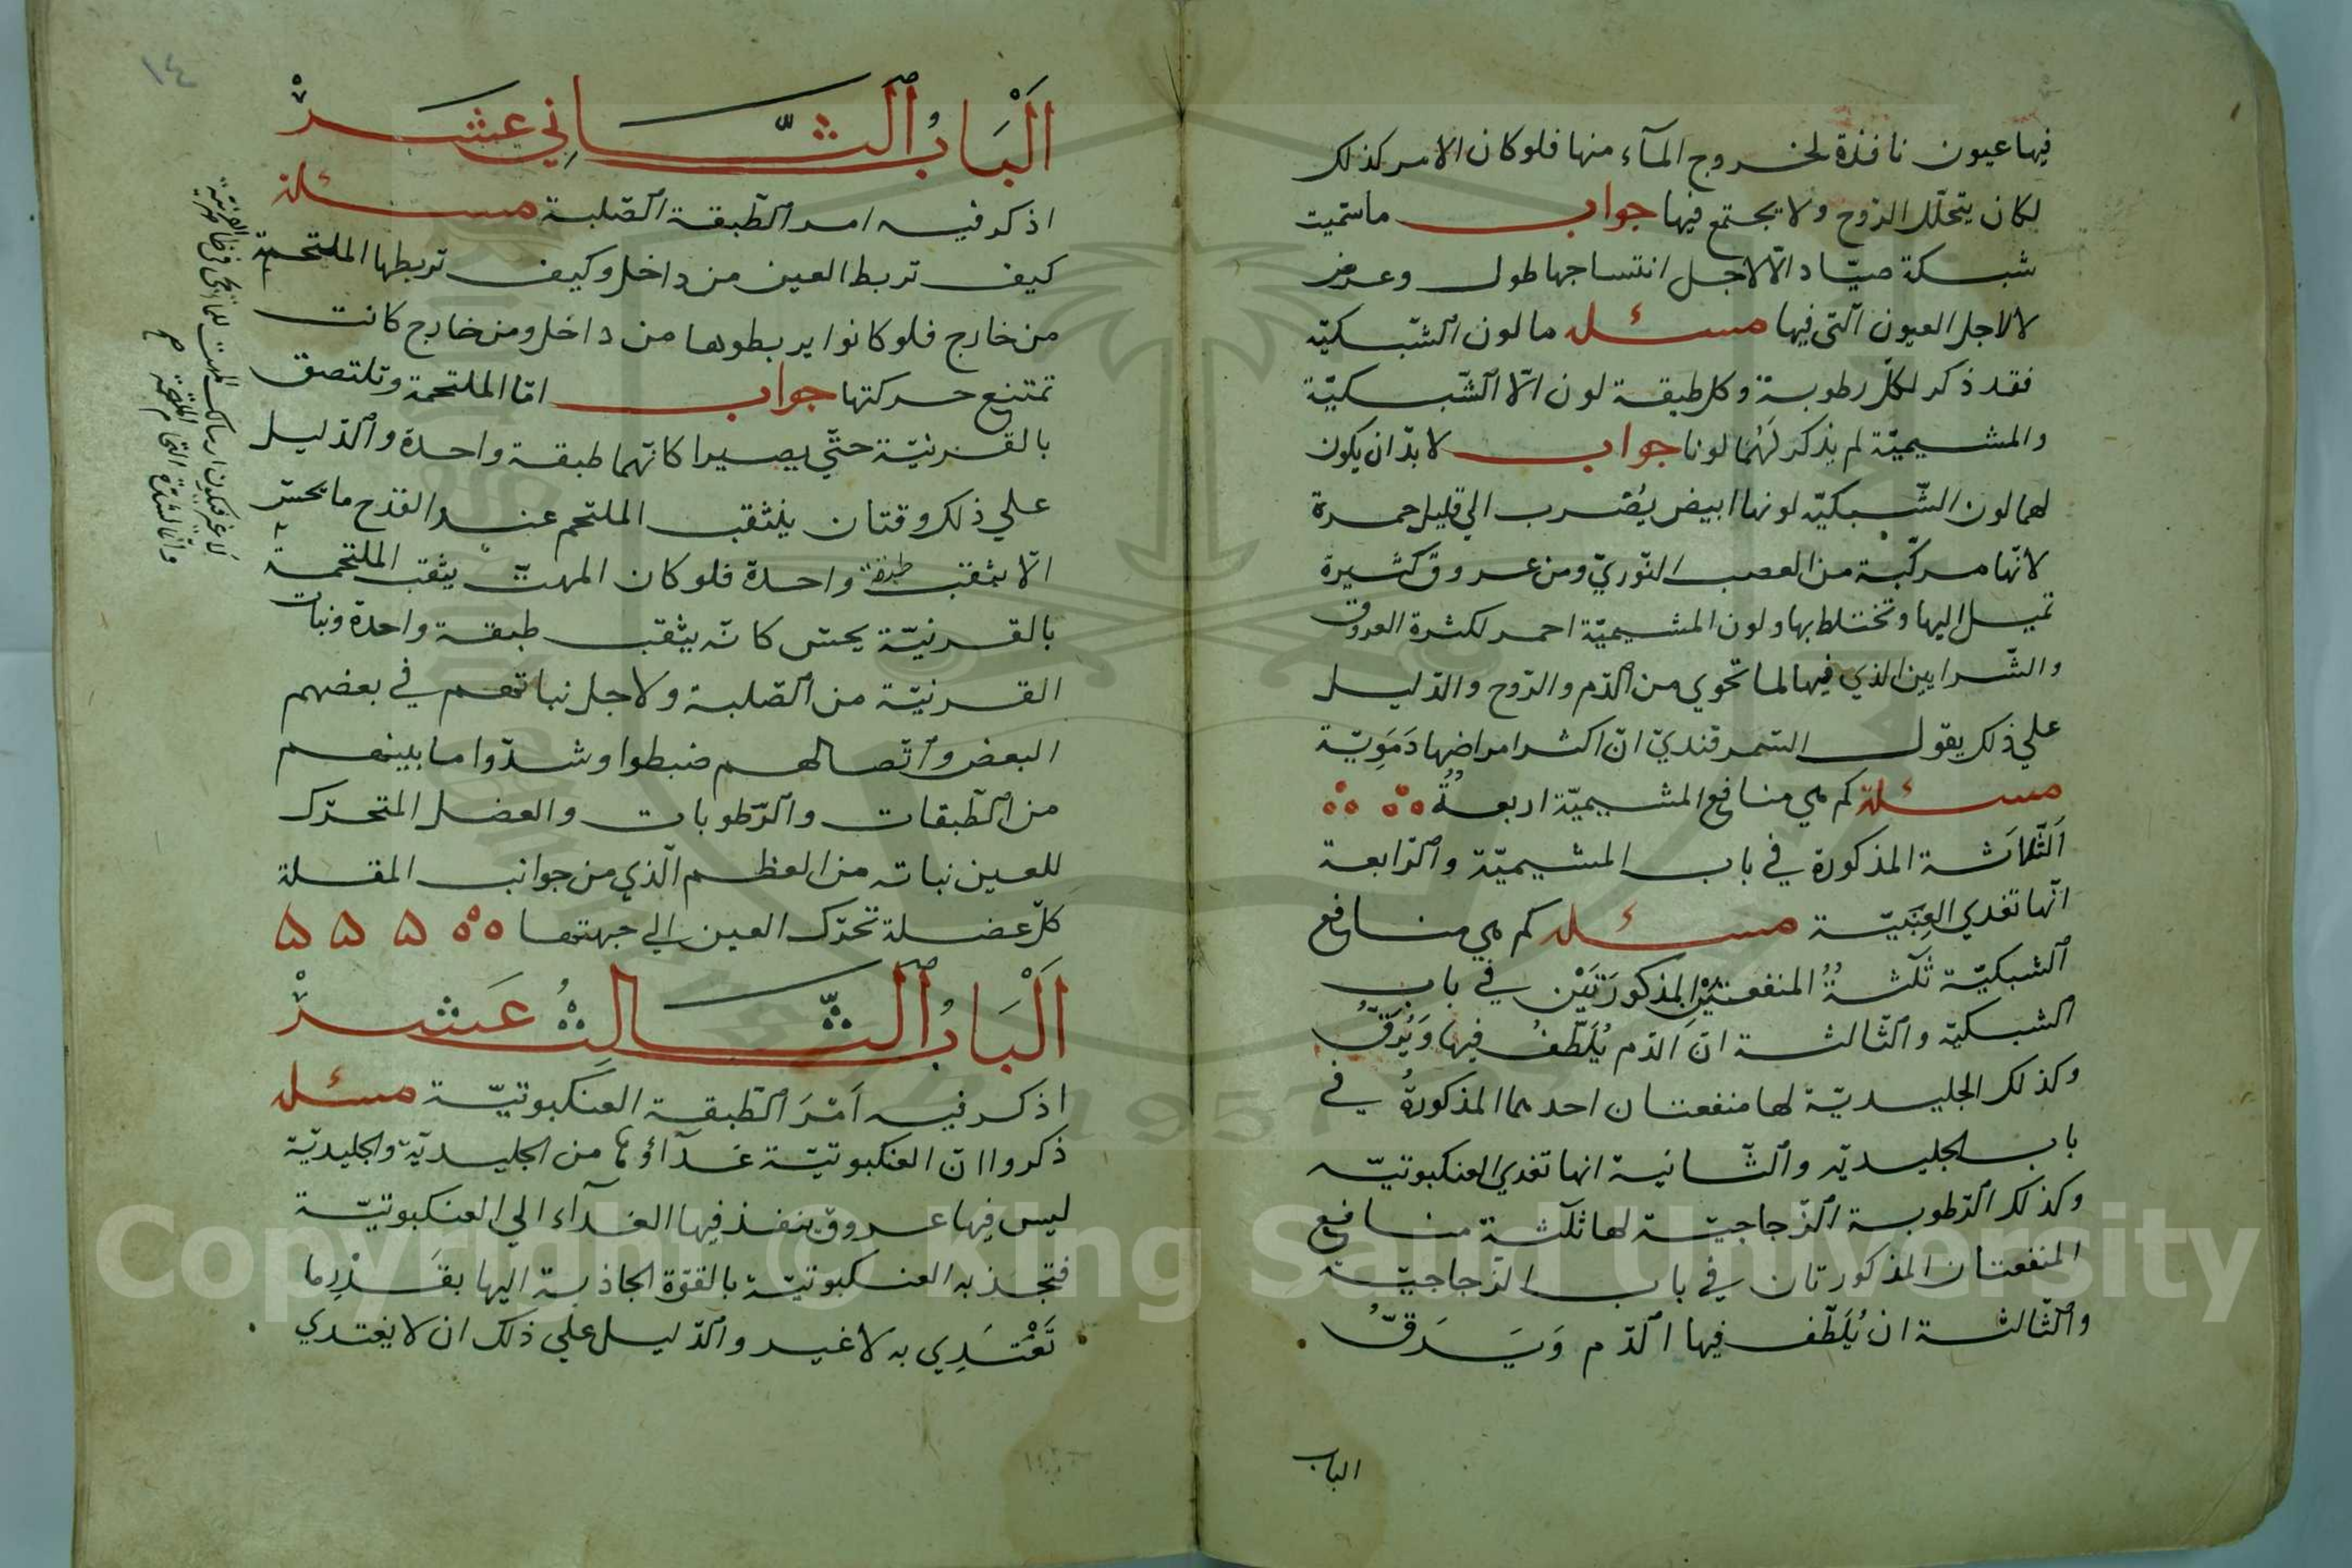 فيها عيون نافذة لخروج المآء منها فلو كان الامر كذلك
لكان يتحلّل الرّوح ولا يجتمع فيها جواب ما سمّيت
شبكة صيّاد الّا لاجل انتساجها طول وعرض
لا لاجل العيون الّتي فيها مسئله ما لون الشّبكيّه
فقد ذكر لكلّ رطوبة وكل طبقة لون الّا الشّبكيّة
والمشيميّة لم يذكر لَهُما لونا جواب لا بدّ ان يكون
لهما لون الشّبكيّه لونها ابيض يُضرب الي قليل حمرة
لانّها مركّبة من العصب النّوريّ ومن عروق كثيرة
تميل اليها وتختلط بها ولون المشيميّة احمر لكثرة العروق
والشّرايين الذي فيها لما تحوي من الدّم والرّوح والدّليل
علي ذلك يقول السّمرقنديّ انّ اكثر امراضها دَمَوِيّة
مسئلة كم هي منافع المشيميّة اربعةٌ
اَلثّلاَثة المذكورة في باب المشيميّة والرّابعة
انّها تغدي العِنَبيّة مسئله كم هي منافع
الشبكيّة ثلثةٌ المنفعتَيْن المذكورَتَيْن في باب
الشبكيّة والثّالثة انّ الدّم يُلَطّفُ فيها وَيُرَقُّ
وكذلك الجليديّة لها منفعتان احدهما المذكورةُ في
باب الجليديّه والثّانية انها تغدي العنكبوتيّه
وكذلك الرّطوبة الزّجاجيّة لها ثلثة منافع
المنفعتان المذكورتان في باب الزّجاجيّة
والثّالثة ان يُلَطّف فيها الدّم وَيَرَقُّ
الباب
١٤
اَلْبَابُ الثَّانِي عَشَرْ
اذكر فيه امر الطّبقة الصّلبة مسئلة
كيف تربط العين من داخل وكيف تربطها الملتحمة
من خارج فلو كانوا يربطوها من داخل ومن خارج كانت
تمتنع حركتها جواب امّا الملتحمة وتلتصق
بالقرنيّة حتّي يصيرا كانّهما طبقة واحدة والدّليل
علي ذلك وقتان يثقب الملتحم عند القدح ما يحسّ
الّا بثقب طبقة واحدة فلو كان المهتّ يثقب الملتحمة
بالقرنيّة يحسّ كانّه يثقب طبقة واحدة ونبات
القرنيّة من الصّلبة ولاجل نباتهم في بعضهم
البعض واتّصالهم ضبطوا وشدّوا ما بينهم
من الطّبقات والرّطوبات والعضل المتحرّك
للعين نباته من العظم الّذي من جوانب المقلة
كلّ عضلة تحرّك العين الي جهتها
اَلْبَابُ الثَّالِثُ عَشَرْ
اذكر فيه اَمْرَ الطّبقة العنكبوتيّة مسئله
ذكروا انّ العنكبوتيّة غدآؤها من الجليديّة والجليديّة
ليس فيها عروق ينفذ فيها الغدآء الي العنكبوتيّة
فتجذبه العنكبوتيّة بالقوّة الجاذبة اليها بقَدْرِ ما
تَغْتَدِي به لا غير والدّليل علي ذلك ان لا يغتدي